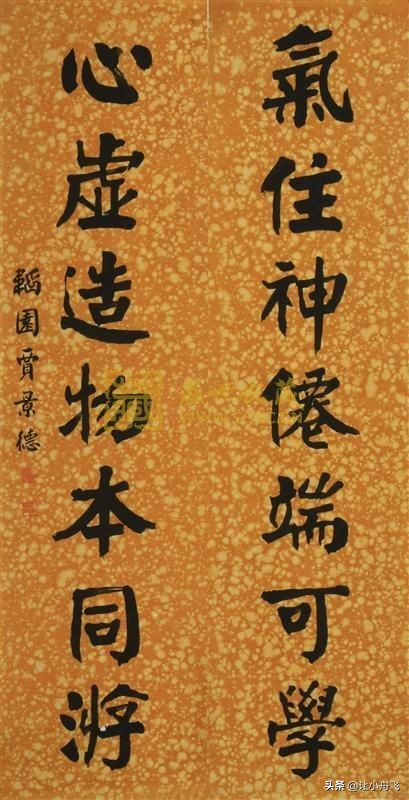 氣住神僊端可學
心虛造物本同游
韜園賈景德
头条@壮小舟飞